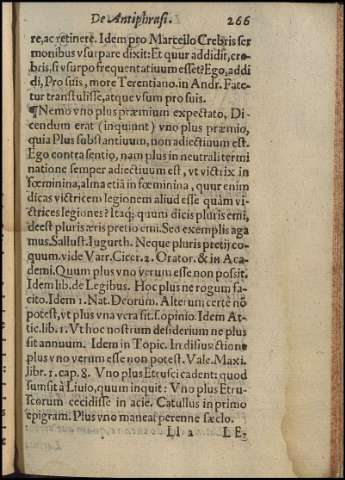 De Antiphrasi. 266
re, ac retinere. Idem pro Marcello Crebris ser
monibus vsurpare dixit: Et quur addidit, cre-
bris, si vsurpo frequentatiuum esset? Ego, addi
di, Pro suis, more Terentiano. in Andr. Fate-
tur transtulisse, atque vsum pro suis.
¶Nemo vno plus præmium expectato, Di-
cendum erat (inquiunt) vno plus præmio,
quia Plus substantiuum, non adiectiuum est.
Ego contra sentio, nam plus in neutrali termi
natione semper adiectiuum est, vt victrix in
fœminina, alma etiã in fœminina, quur enim
dicas victricem legionem aliud esse quàm vi-
ctrices legiones? Itaq; quum dicis pluris emi,
deest pluris æris pretio emi. Sed exemplis aga
mus. Sallust. Iugurth. Neque pluris pretij co-
quum. vide Varr. Cicer. 2. Orator. & in Aca-
demi. Quum plus vno verum esse non possit.
Idem lib. de Legibus. Hoc plus ne rogum fa-
cito. Idem 1. Nat. Deorum. Alterum certe nõ
potest, vt plus vna vera sit. opinio. Idem At-
tic. lib. 1. Vt hoc nostrum desiderium ne plus
sit annuum. Idem in Topic. In disiuctione
plus vno verum esse non potest. Vale. Maxi.
libr. 1. cap. 8. Vno plus Etrusci cadent: quod
sumsit à Liuio, quum inquit: Vno plus Etru-
scorum cecidisse in acie. Catullus in primo
epigram. Plus vno maneat perenne sæclo.
Ll 2 LE-